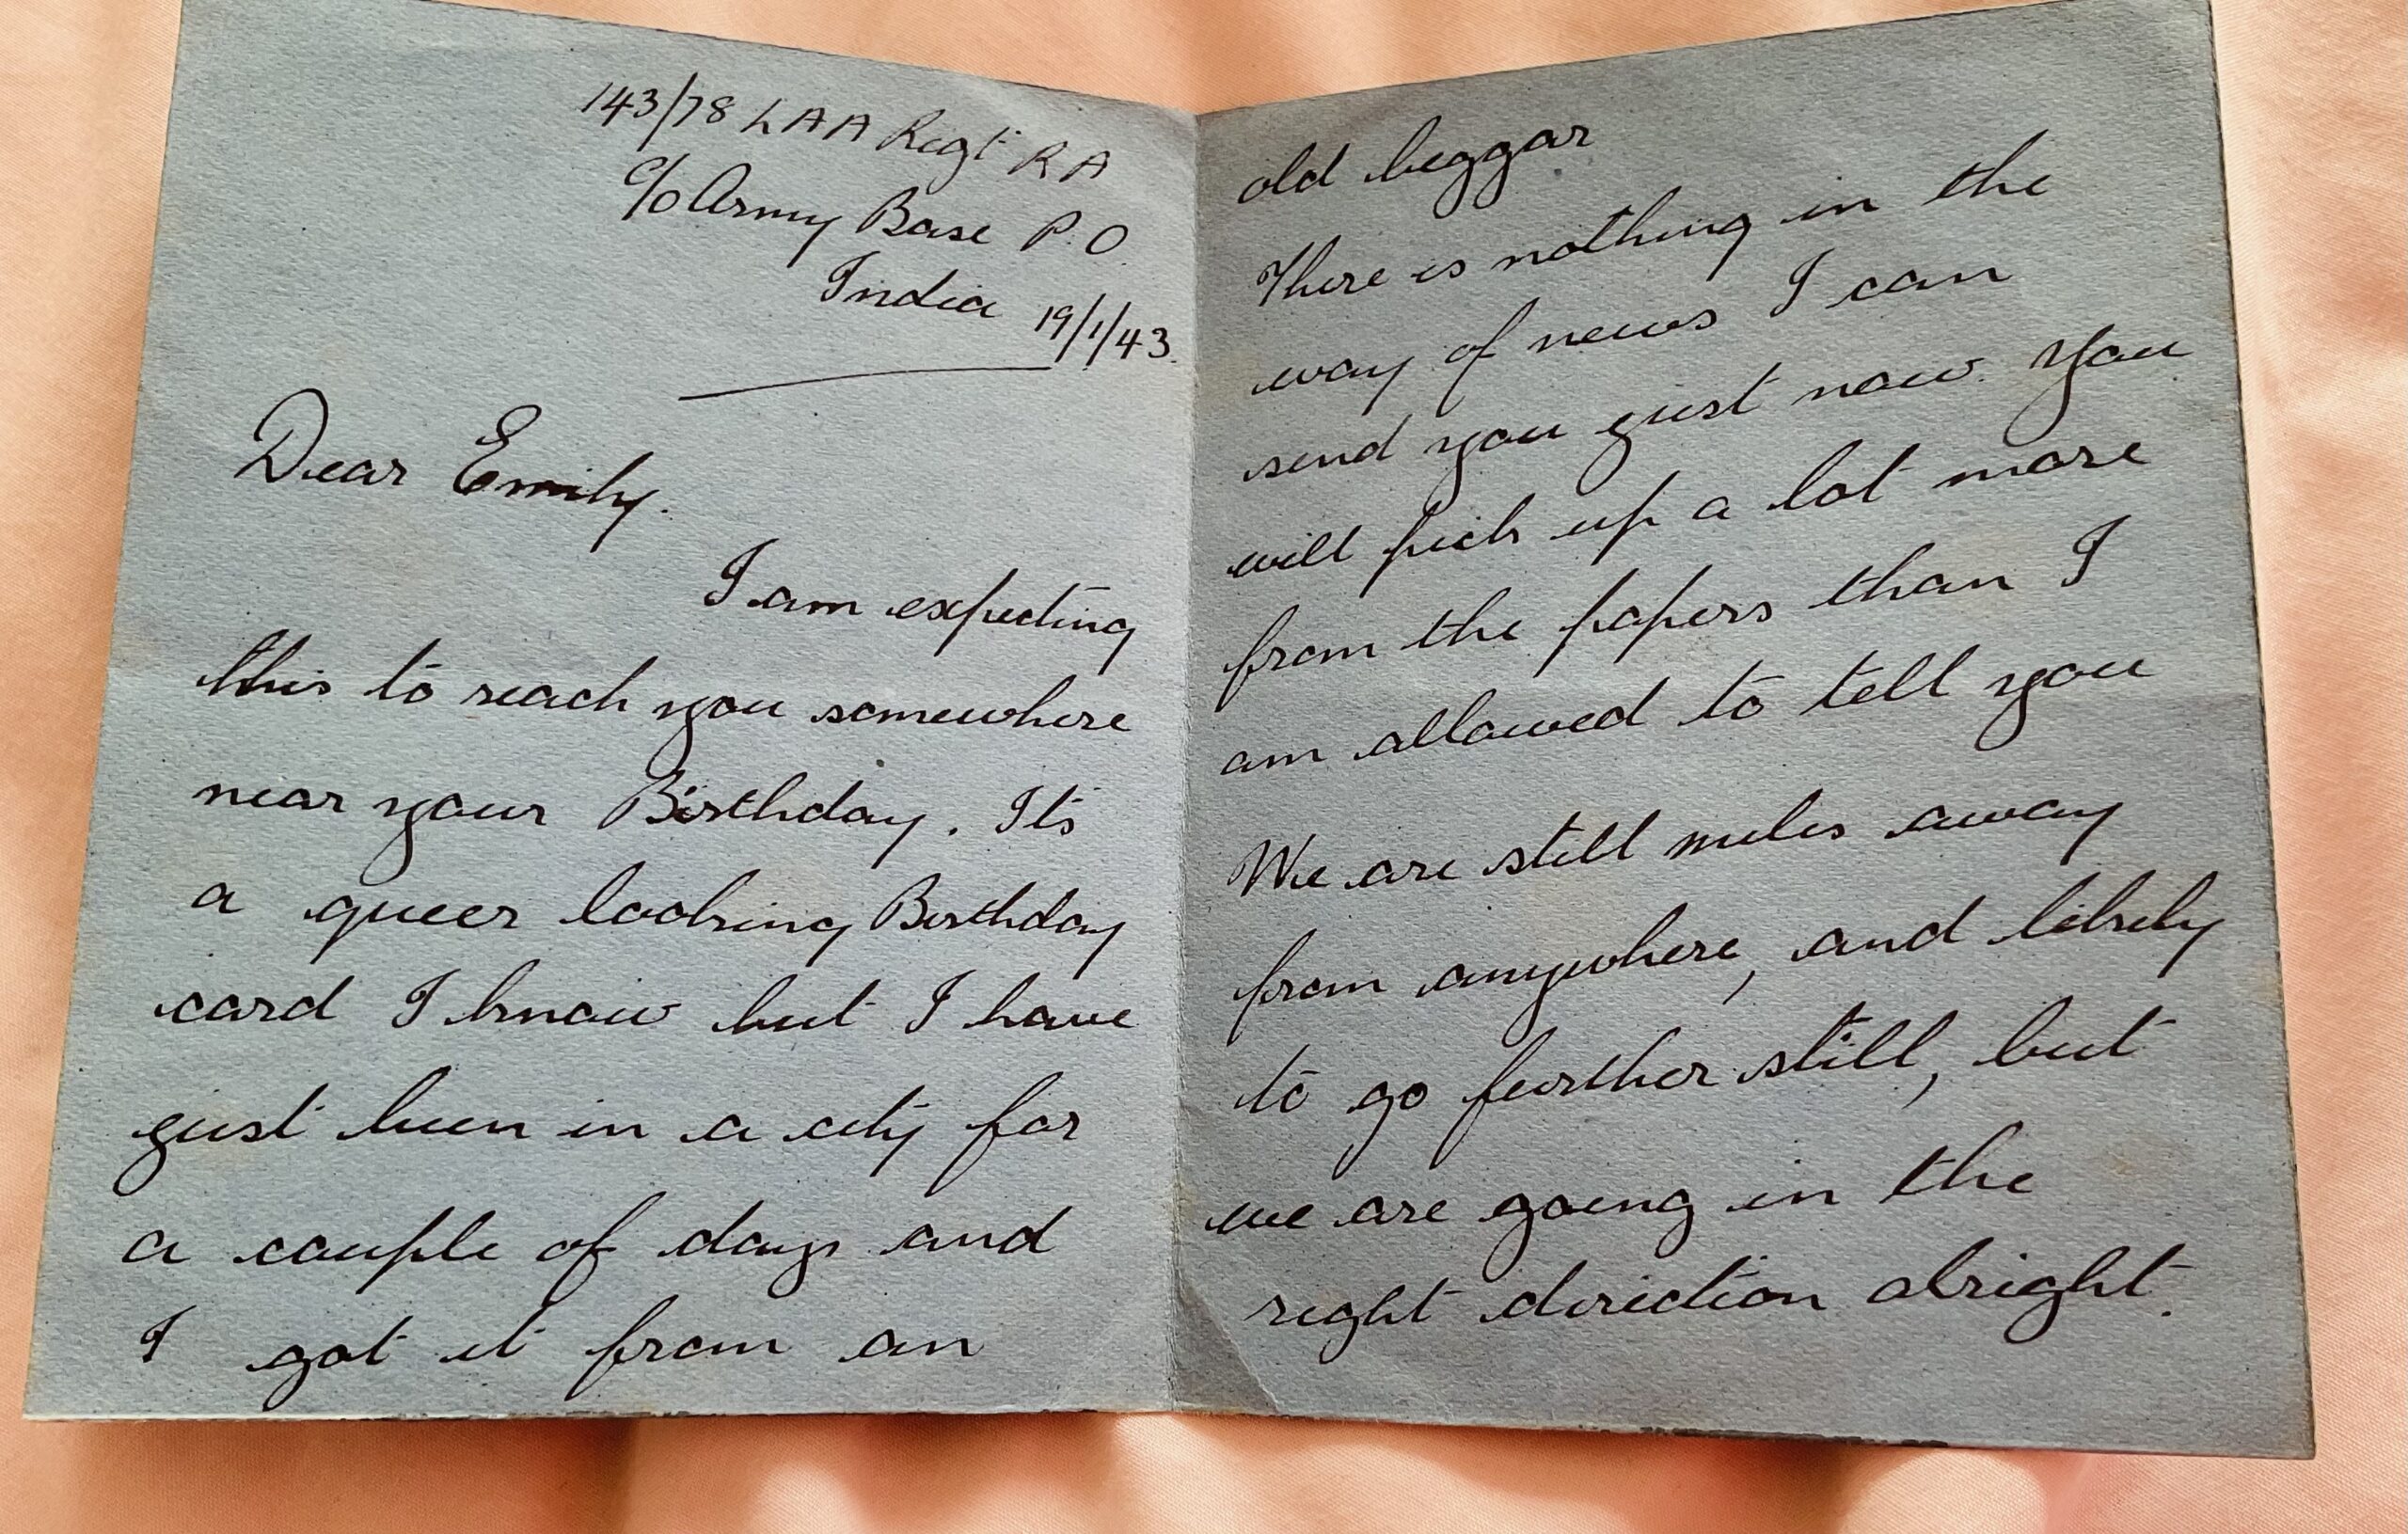 143/78 LAA Regt RA
c/o Army Base P.O.
India 19/1/43.
Dear Emily.
I am expecting
this to reach you somewhere
near your Birthday. Its
a queer looking Birthday
card I know but I have
just been in a city for
a couple of days and
I got it from an
old beggar
There is nothing in the
way of news I can
send you just now. You
will pick up a lot more
from the papers than I
am allowed to tell you
We are still miles away
from anywhere, and likely
to go further still, but
we are going in the
right direction alright.